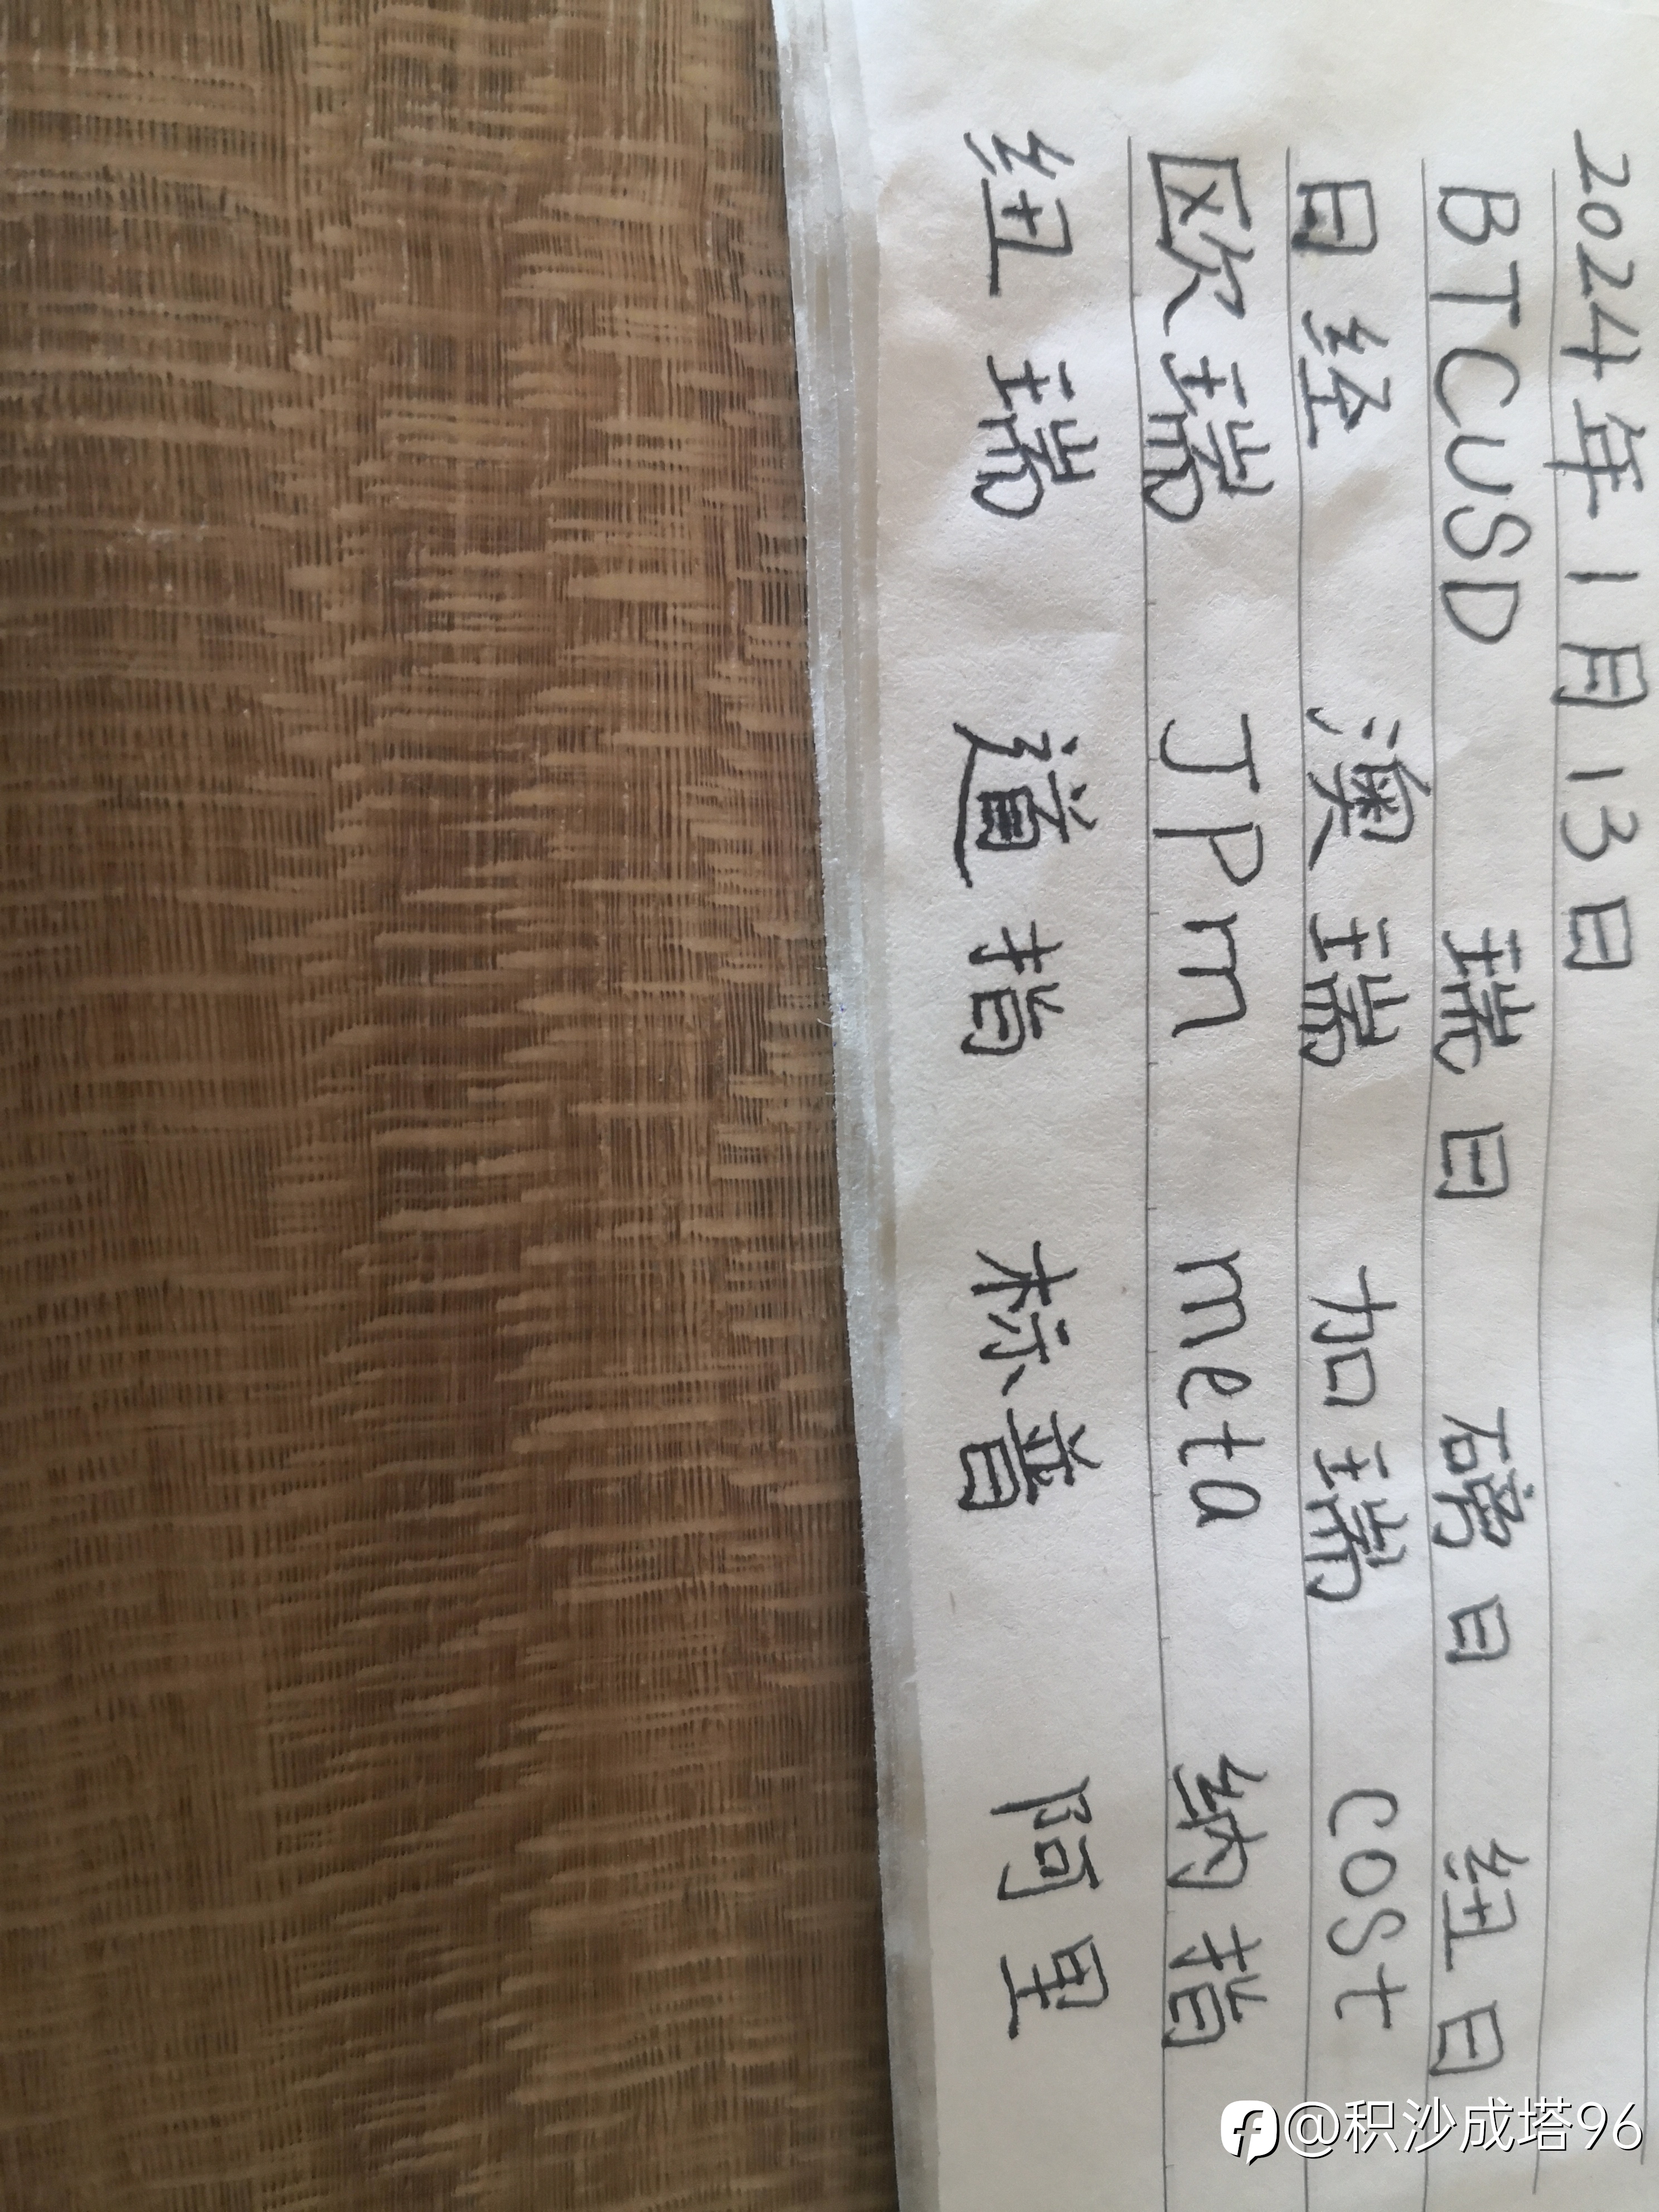 2024年1月13日
BTCUSD 瑞日 磅日 纽日
日经 澳瑞 加瑞 COSt
欧瑞 JPm meta 纳指
纽瑞 道指 标普 阿里
@积沙成塔96